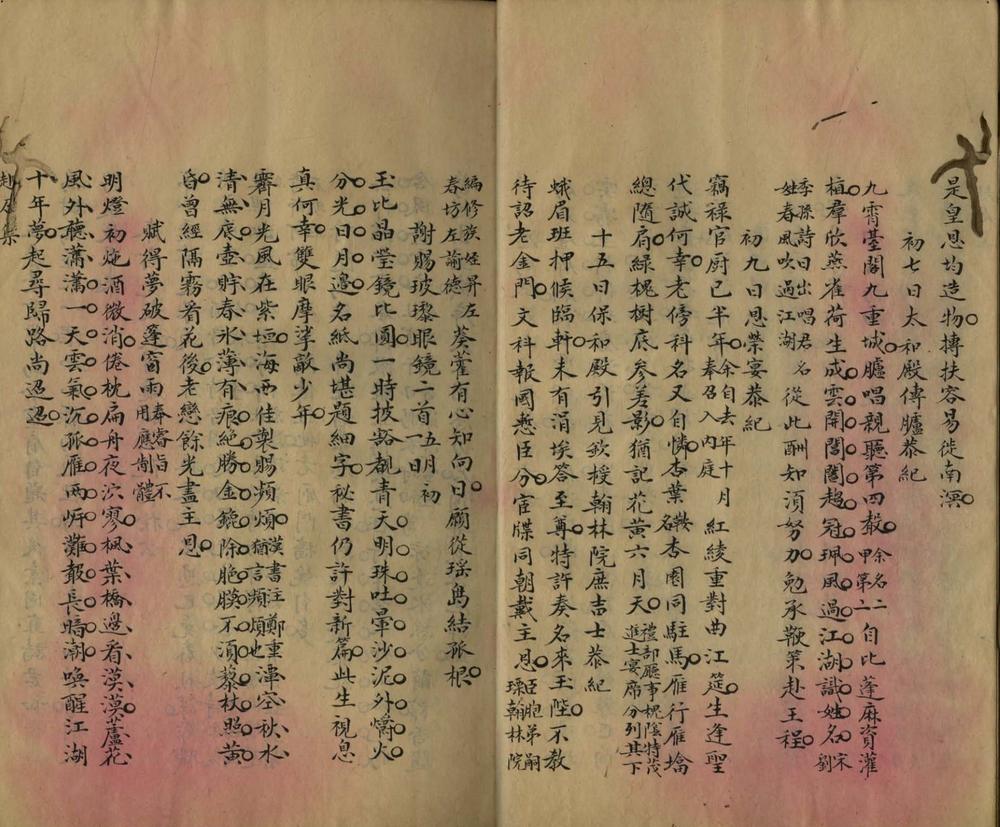 是皇恩均造物摶扶容易徙南溟
初七日太和殿傳臚恭紀
九霄臺閣九重城臚唱親聽第四聲余名二甲第二自比蓬麻資灌
植群欣燕雀荷生成雲開閶闔趨冠珮風過江湖識姓名宋劉
季孫詩曰出唱君名姓春風吹過江湖從此酬知須努力勉承鞭策赴王程
初九日恩榮宴恭紀
竊祿官厨已半年余自去年十月奉召入內庭紅綾重對曲江筵生逢聖
代誠何幸老傍科名又自憐杏葉鞍名杏園同駐馬雁行雁塔
總隨肩綠槐樹底參差影猶記花黃六月天禮部廳事槐陰特茂進士宴席分列其下
十五日保和殿引見欽授翰林院庶吉士恭紀
蛾眉班押候臨軒未有涓埃答至尊特許奏名來王陛不教
待詔老金門文科報國慙臣分宦牒同朝戴主恩臣胞弟嗣瑮翰林院
編修族姪昇左春坊左諭德葵藿有心知向日願從瑶島結孤根
謝賜玻瓈眼鏡二首五月初一日
玉比晶瑩鏡比圓一時披豁覩青天明珠吐暈沙泥外爝火
分光日月邊名紙尚堪題細字秘書仍許對新篇此生視息
真何幸雙眼摩挲敵少年
霽月光風在紫垣海西佳製賜頻煩漢書注鄭重猶言頻煩也渾容秋水
清無底壺貯春氷薄有痕絶勝金鎞除脃膜不須藜杖照黃
昏曾經隔霧看花後老戀餘光盡主恩
賦得夢破蓬窗雨春睿旨不用應制體
明燈初灺酒微消倦枕扁舟夜泬寥楓葉橋邊看漠漠蘆花
風外聽瀟瀟一天雲氣沉孤雁兩岍灘聲長暗潮喚醒江湖
十年夢起尋歸路尚迢迢
赴召集